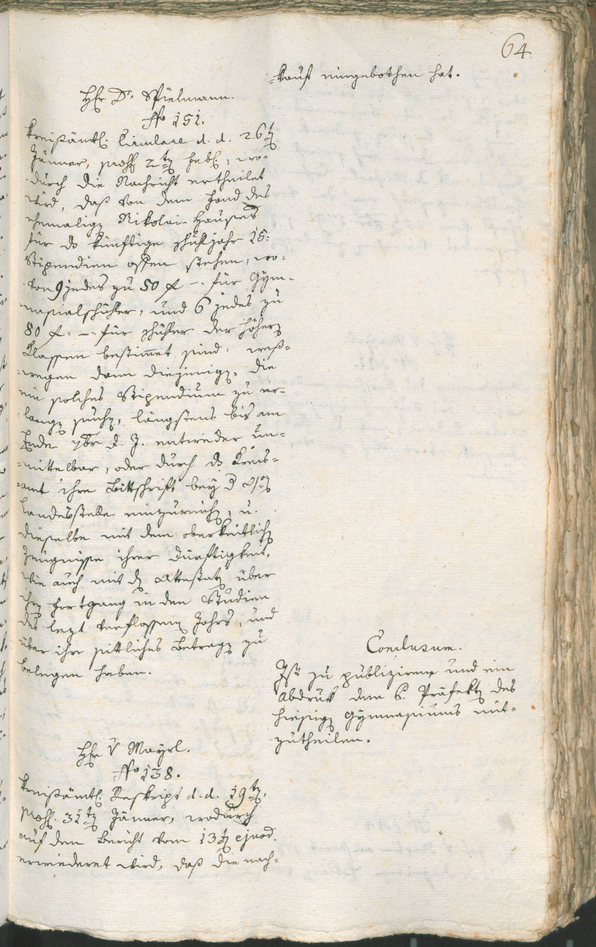 64.
kauf eingebothen hat.
Hr Dr Spielmann.
No 151.
Kreisämtl. Cirulare d. d. 26t
Jänner, praes. 2t Feb. wo-
durch die Nachricht ertheilet
wird, daß von dem Fond des
ehemalig Nikolai Hauses
für das künftige Schuljahr 15:
Stipendien offen stehen, wo-
von 9 jedes zu 50 f –. für Gym-
nasialschüler, und 6 jedes zu
80 f: –. für Schüler der höhern
Classen bestimmt sind, weß-
wegen dann diejenige, die
ein solches Stipendium zu er-
langen suchen, längstens bis am
Ende 7br d. J. entweder un-
mittelbar, oder durch das Kreis-
amt ihre Bittschrift bey der
Landesstelle einzureichen, u.
dieselbe mit dem oberkeitlichen
Zeugnisse ihrer Dürftigkeit,
wie auch mit den Attestaten über
ihren Fortgang in den Studien
des letzt verflossenen Jahrs, und
über ihr sittliches Betragen zu
belegen haben.
Conclusum.
Ist zu publiziren und ein
Abdruck dem H. Präfekten des
hiesigen Gymnasiums mit-
zutheilen.
Hr v Mayrl.
No 138.
Kreisämtl. Reskript d. d. 19t,
praes. 31t Jänner, wodurch
auf den Bericht vom 13t ejusd.
erwiederet wird, daß die nach-